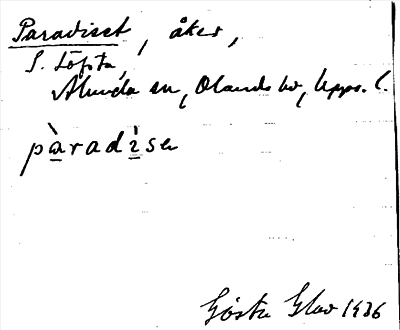 Paradiset, åker,
S. Löfsta,
Alunda sn, Olands hd, Upps. l.
pàradìsə
Gösta Glad 1936